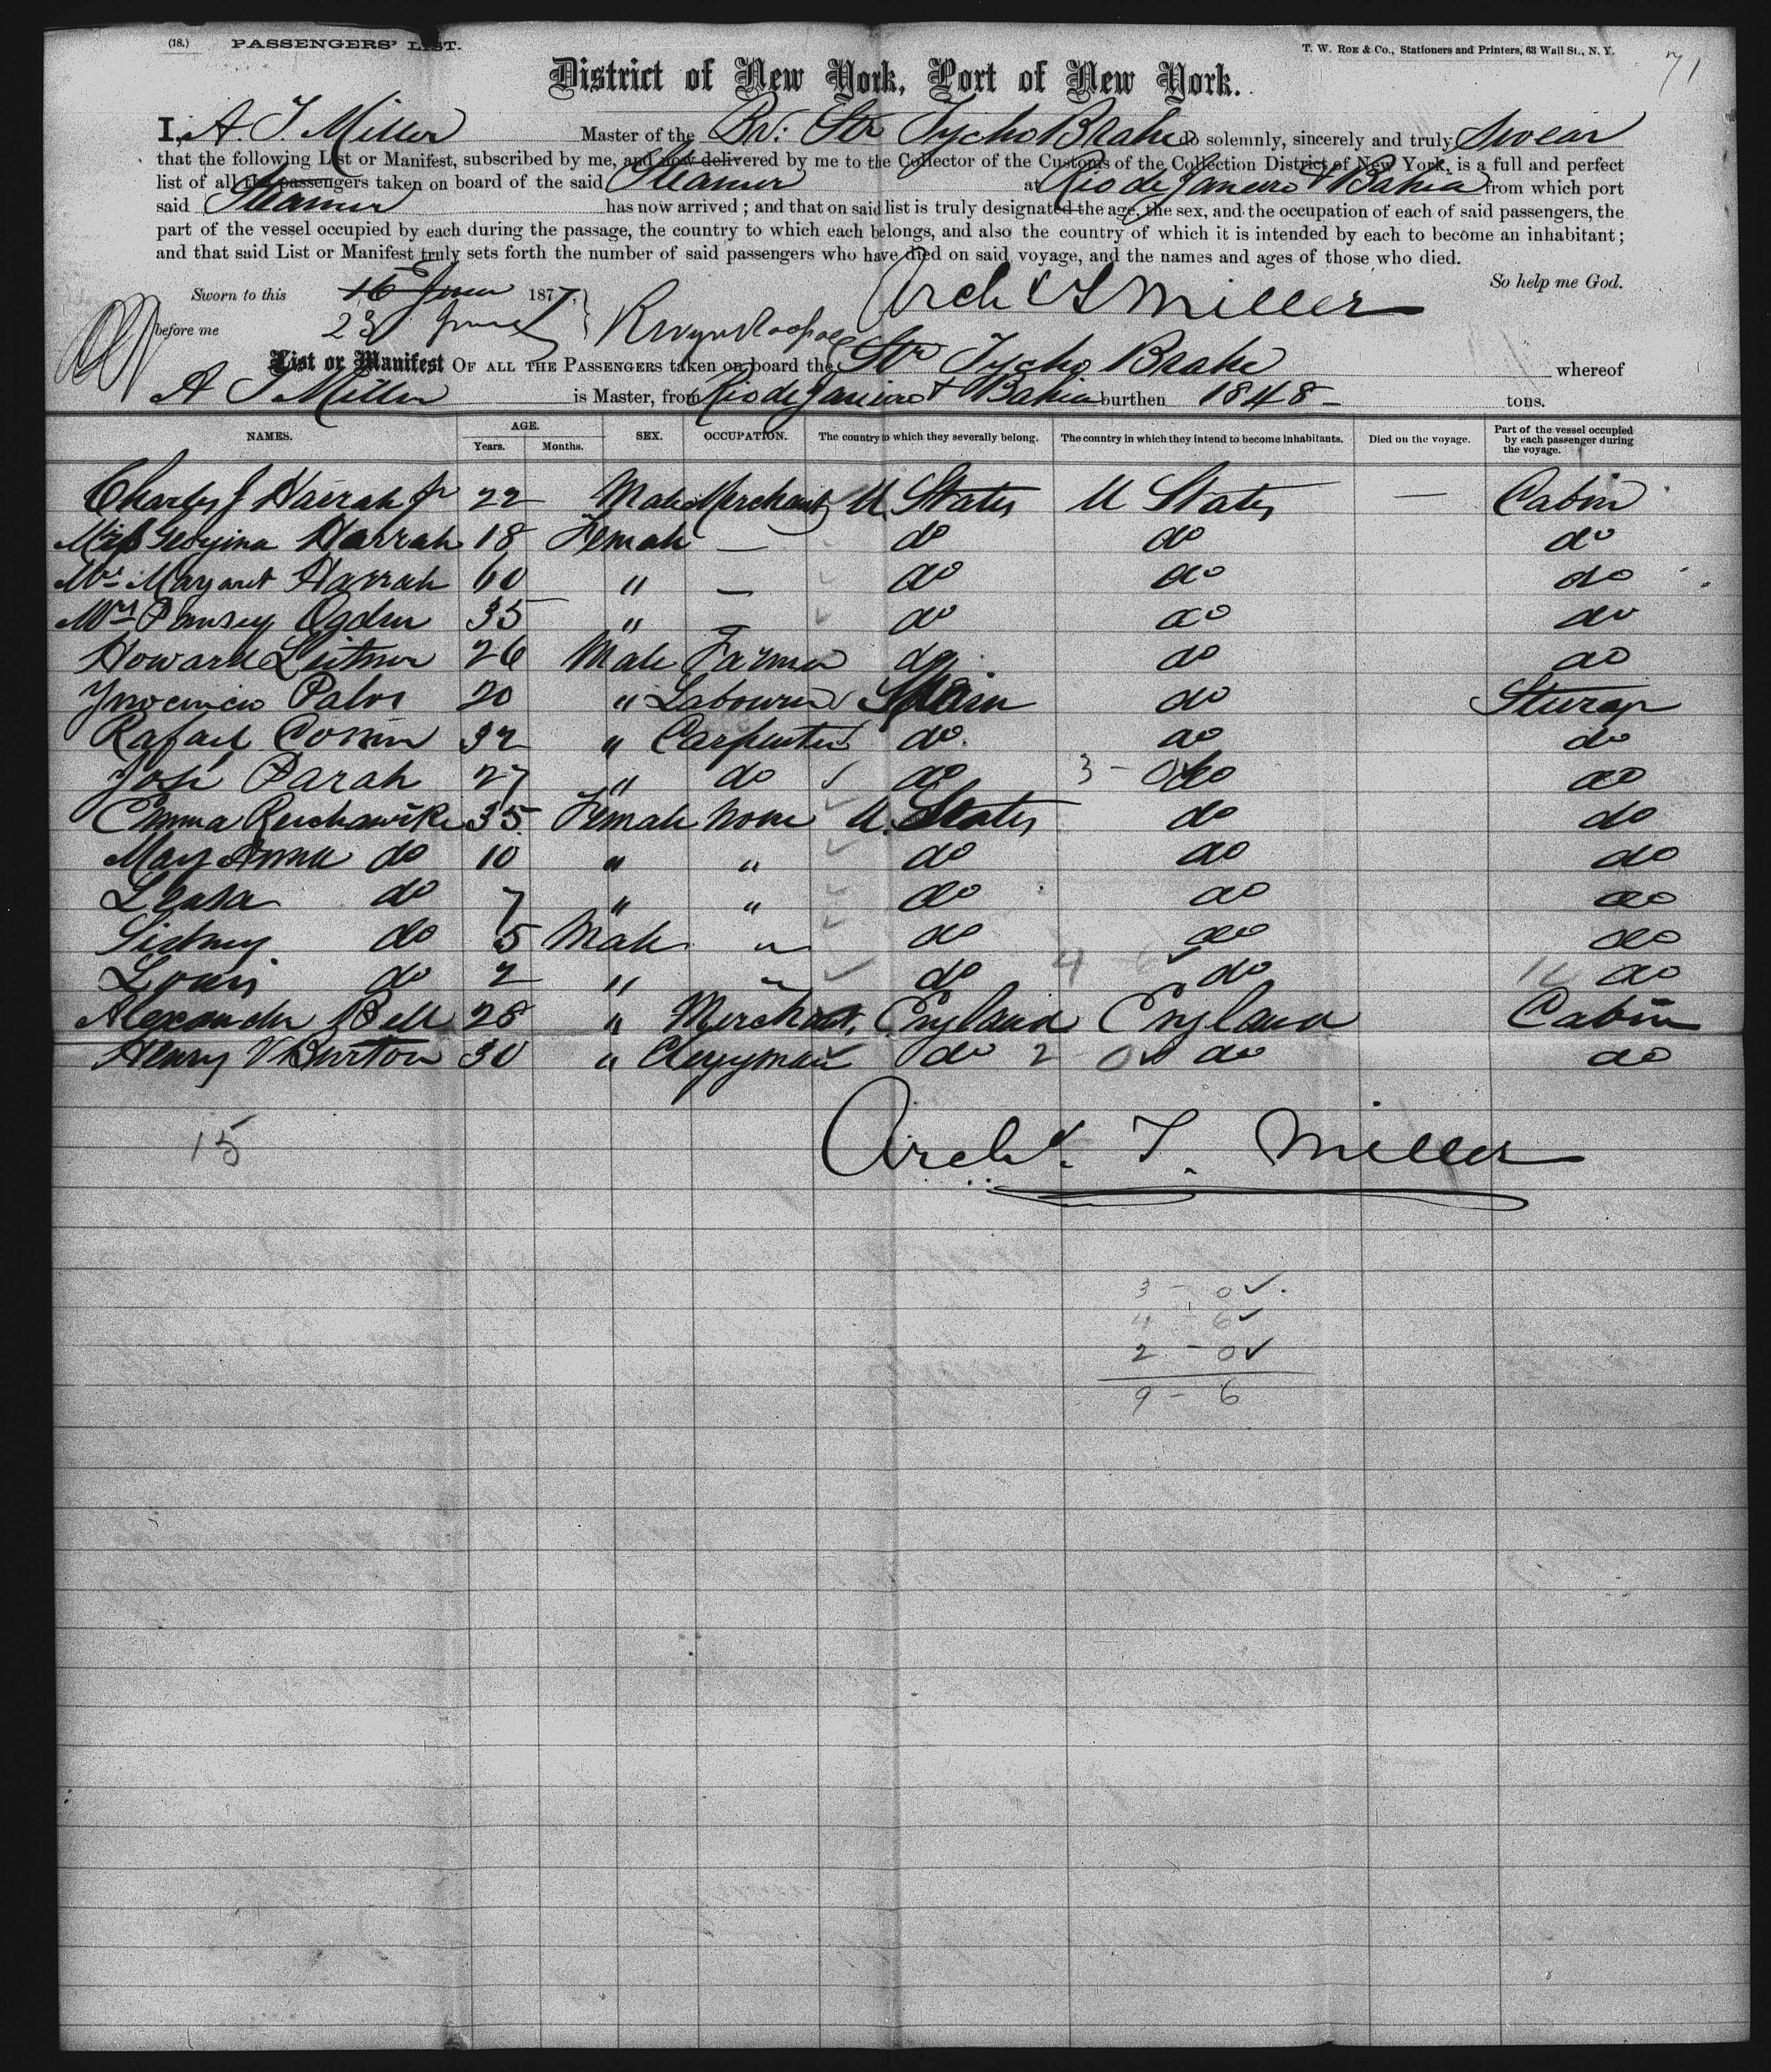 (18.) PASSENGERS' LIST. T. W. Roe & Co., Stationers and Printers, 63 Wall St., N. Y. 71
District of New York, Port of New York.
I, A. T. Miller Master of the Br: Str Tycho Brahe do solemnly, sincerely and truly Swear
that the following List or Manifest, subscribed by me, and now delivered by me to the Collector of the Customs of the Collection District of New York, is a full and perfect
list of all the passengers taken on board of the said Steamer at Rio de Janeiro & Bahia from which port
said Steamer has now arrived ; and that on said list is truly designated the age, the sex, and the occupation of each of said passengers, the
part of the vessel occupied by each during the passage, the country to which each belongs, and also the country of which it is intended by each to become an inhabitant ;
and that said List or Manifest truly sets forth the number of said passengers who have died on said voyage, and the names and ages of those who died.
So help me God.
Sworn to this 16 June 1877, Archd T Miller
before me 23 June
List or Manifest OF ALL THE PASSENGERS taken on board the Str Tycho Brahe whereof
A T Miller is Master, from Rio de Janeiro & Bahia burthen 1848 - tons.
NAMES. AGE. Years. Months. SEX. OCCUPATION. The country to which they severally belong. The country in which they intend to become inhabitants. Died on the voyage. Part of the vessel occupied by each passenger during the voyage.
Charles J Harrah Jr 22 Male Merchant U. States U States — Cabin
Miss Georgina Harrah 18 Female — do do do
Mrs Margaret Harrah 60 " — do do do
Mrs Ogden 35 " — do do do
Howard 26 Male Farmer do do do
Palos 20 " Labourer Spain do Steerage
Rafael 32 " Carpenter do. do do
José Parah 27 " do do 3 - 0 do do
Emma 35 Female None U. States do do
Mary Anna do 10 " " do do do
do 7 " " do do do
Sidney do 5 Male " do do do
Louis do 2 " " do 4 - 6 do do
Alexander Bell 28 " Merchant, England England Cabin
Henry V Burton 30 " Clergyman do 2 0 do do
15
Archd. T. Miller
3 - 0 ✓
4 - 6 ✓
2 - 0 ✓
9 - 6